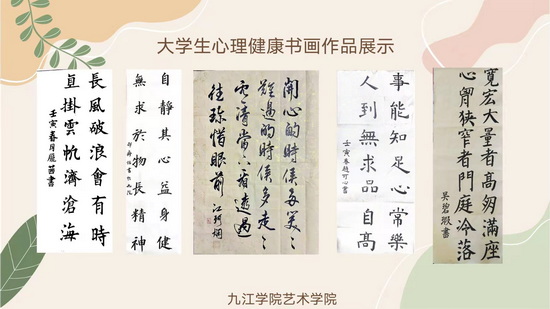 大学生心理健康书画作品展示
長風破浪會有時
直掛雲帆濟滄海
自靜其心益身健
無求於物長精神
開心的時侯多笑〻
難過的時侯多走〻
看清當下看透過
往珍惜眼前
事能知足心常樂
人到無求品自高
壬寅春趙可心書
寬宏大量者高朋滿座
心胸狹窄者門庭冷落
吴碧瑕書
九江学院艺术学院